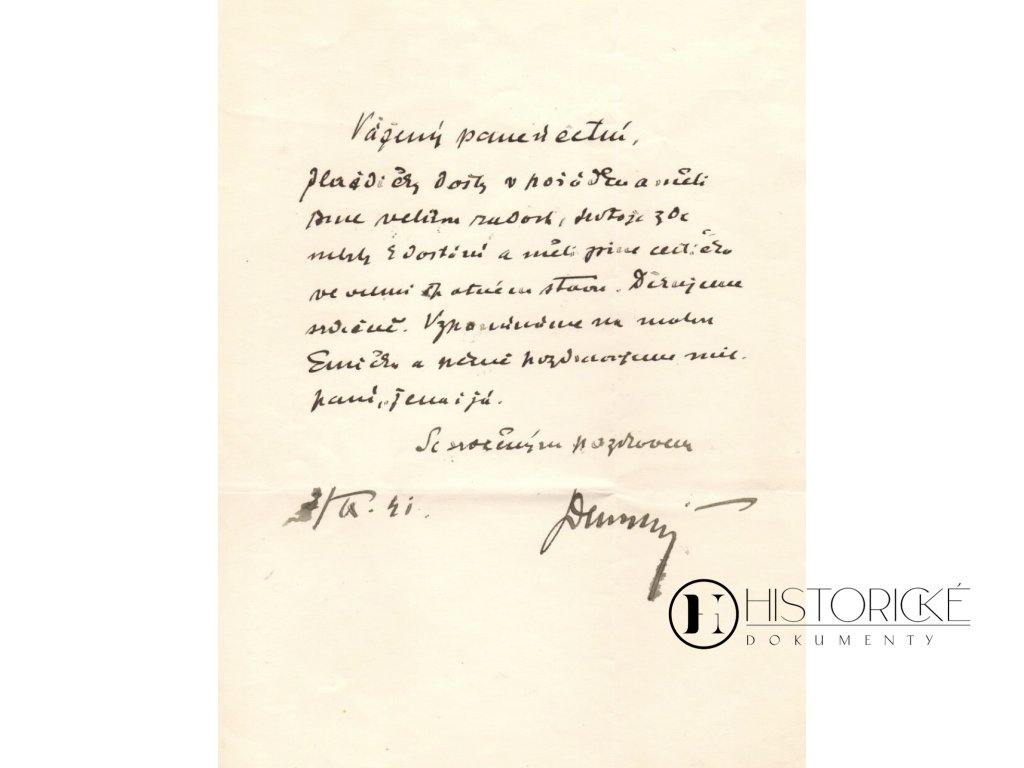 Vážený pane řectní,
došly v pořádku a měli
jsme velikou radost,
nebyly k dostání a měli jsme
ve velmi špatném stavu. Děkujeme
srdečně. Vzpomínáme na malou
Emičku a pěkně pozdravujeme mil.
paní, žena i já.
Se srdečným pozdravem
/IX. 41.
HISTORICKÉ
DOKUMENTY